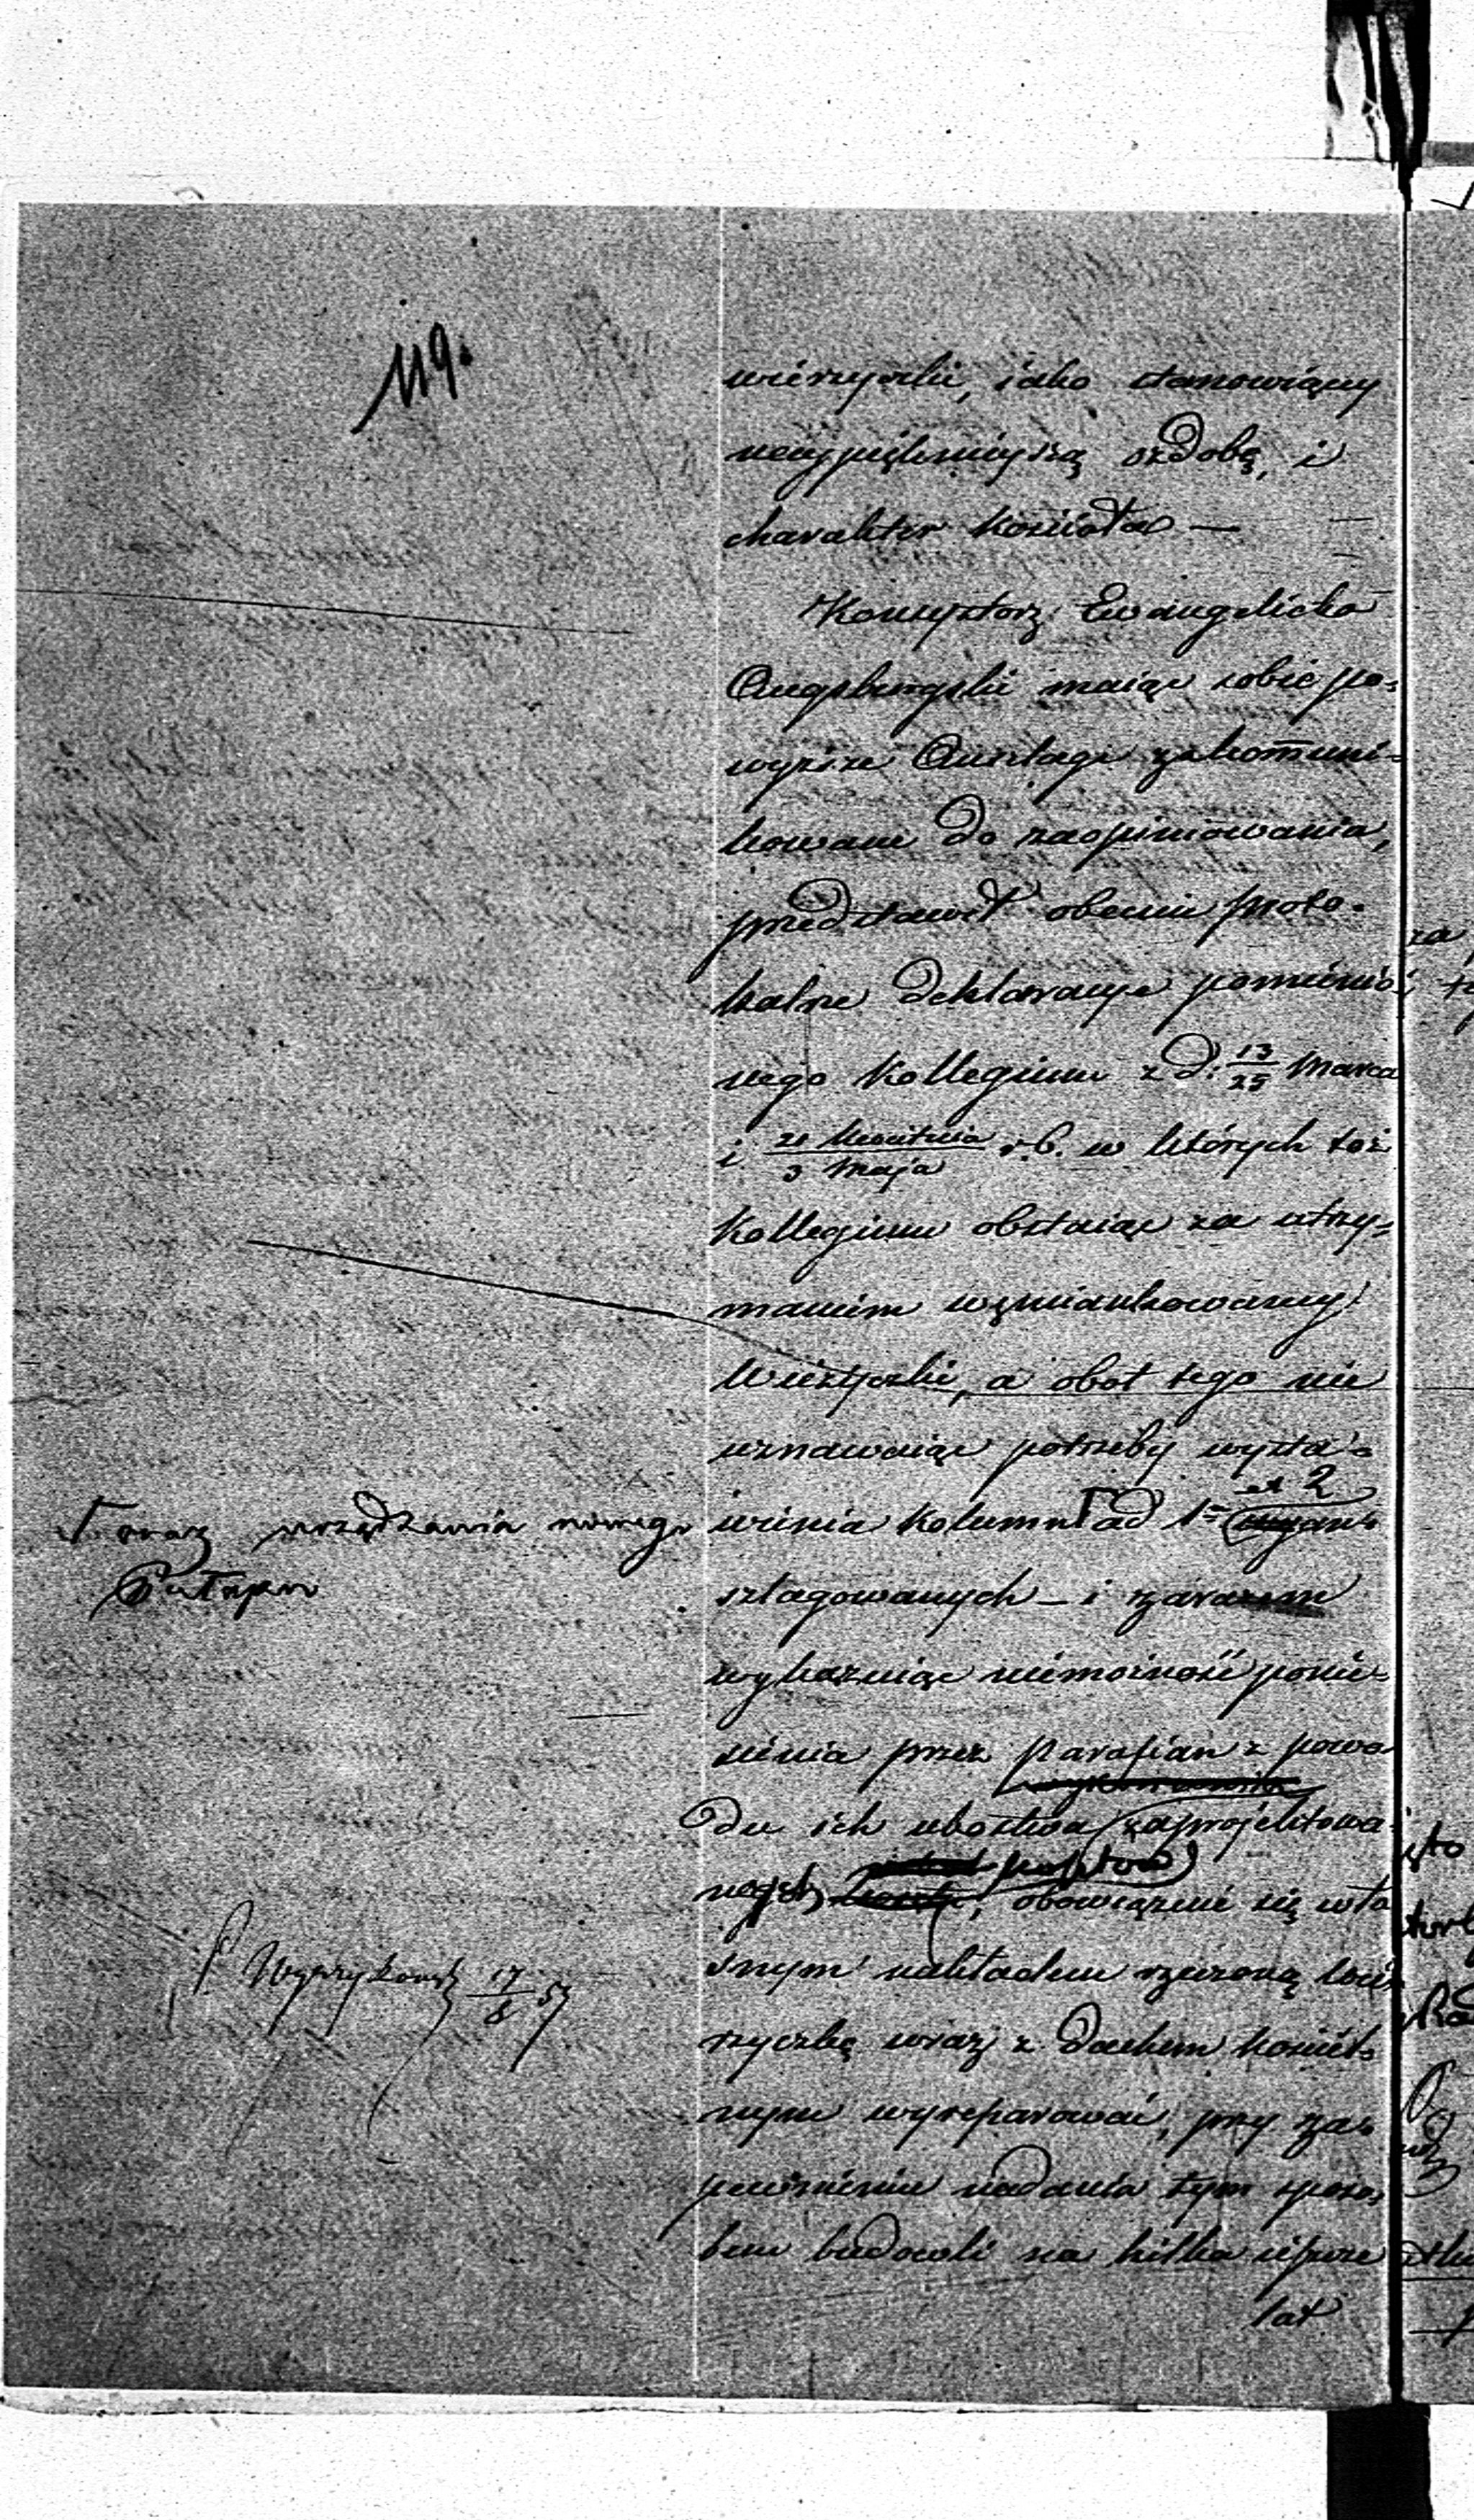 119.
wieżyczki, jako stanowiący
najpiękniejszą ozdobę, i
charakter kościoła —
Konsystorz Ewangelicko
Augsburgski maiąc sobie po-
wyższe Anszlagi zakom̄uni-
kowane do zaopiniowania,
przedstawił obecnie proto-
kalne deklaracye pomienio-
nego Kollegium z d. 13/25 Marca
i 21 Kwietnia/3 Maja r.b. w których toż
Kollegium obstaiąc za utrzy-
maniem wzmiankowanej
Wieżyczki, a obok tego nie
uznawaiąc potrzeby wysta-
wienia Kolumn Γ ad 1º et 2 an-
szlagowanych – i zarazem
Γ oraz urządzenia nowego
wykazuiąc niemożność ponie-
sienia przez Parafian z powo-
du ich ubóstwa zaprojektowa-
nych kosztów, obowiązuie się wła-
snym nakładem rzeczoną wie-
życzkę wraz z dachem kościel-
nym wyreparować, przy za-
pewnieniu nadania tym sposo-
bem budowli na kilka jeszcze
lat
Wyrzykowski 17/6 57